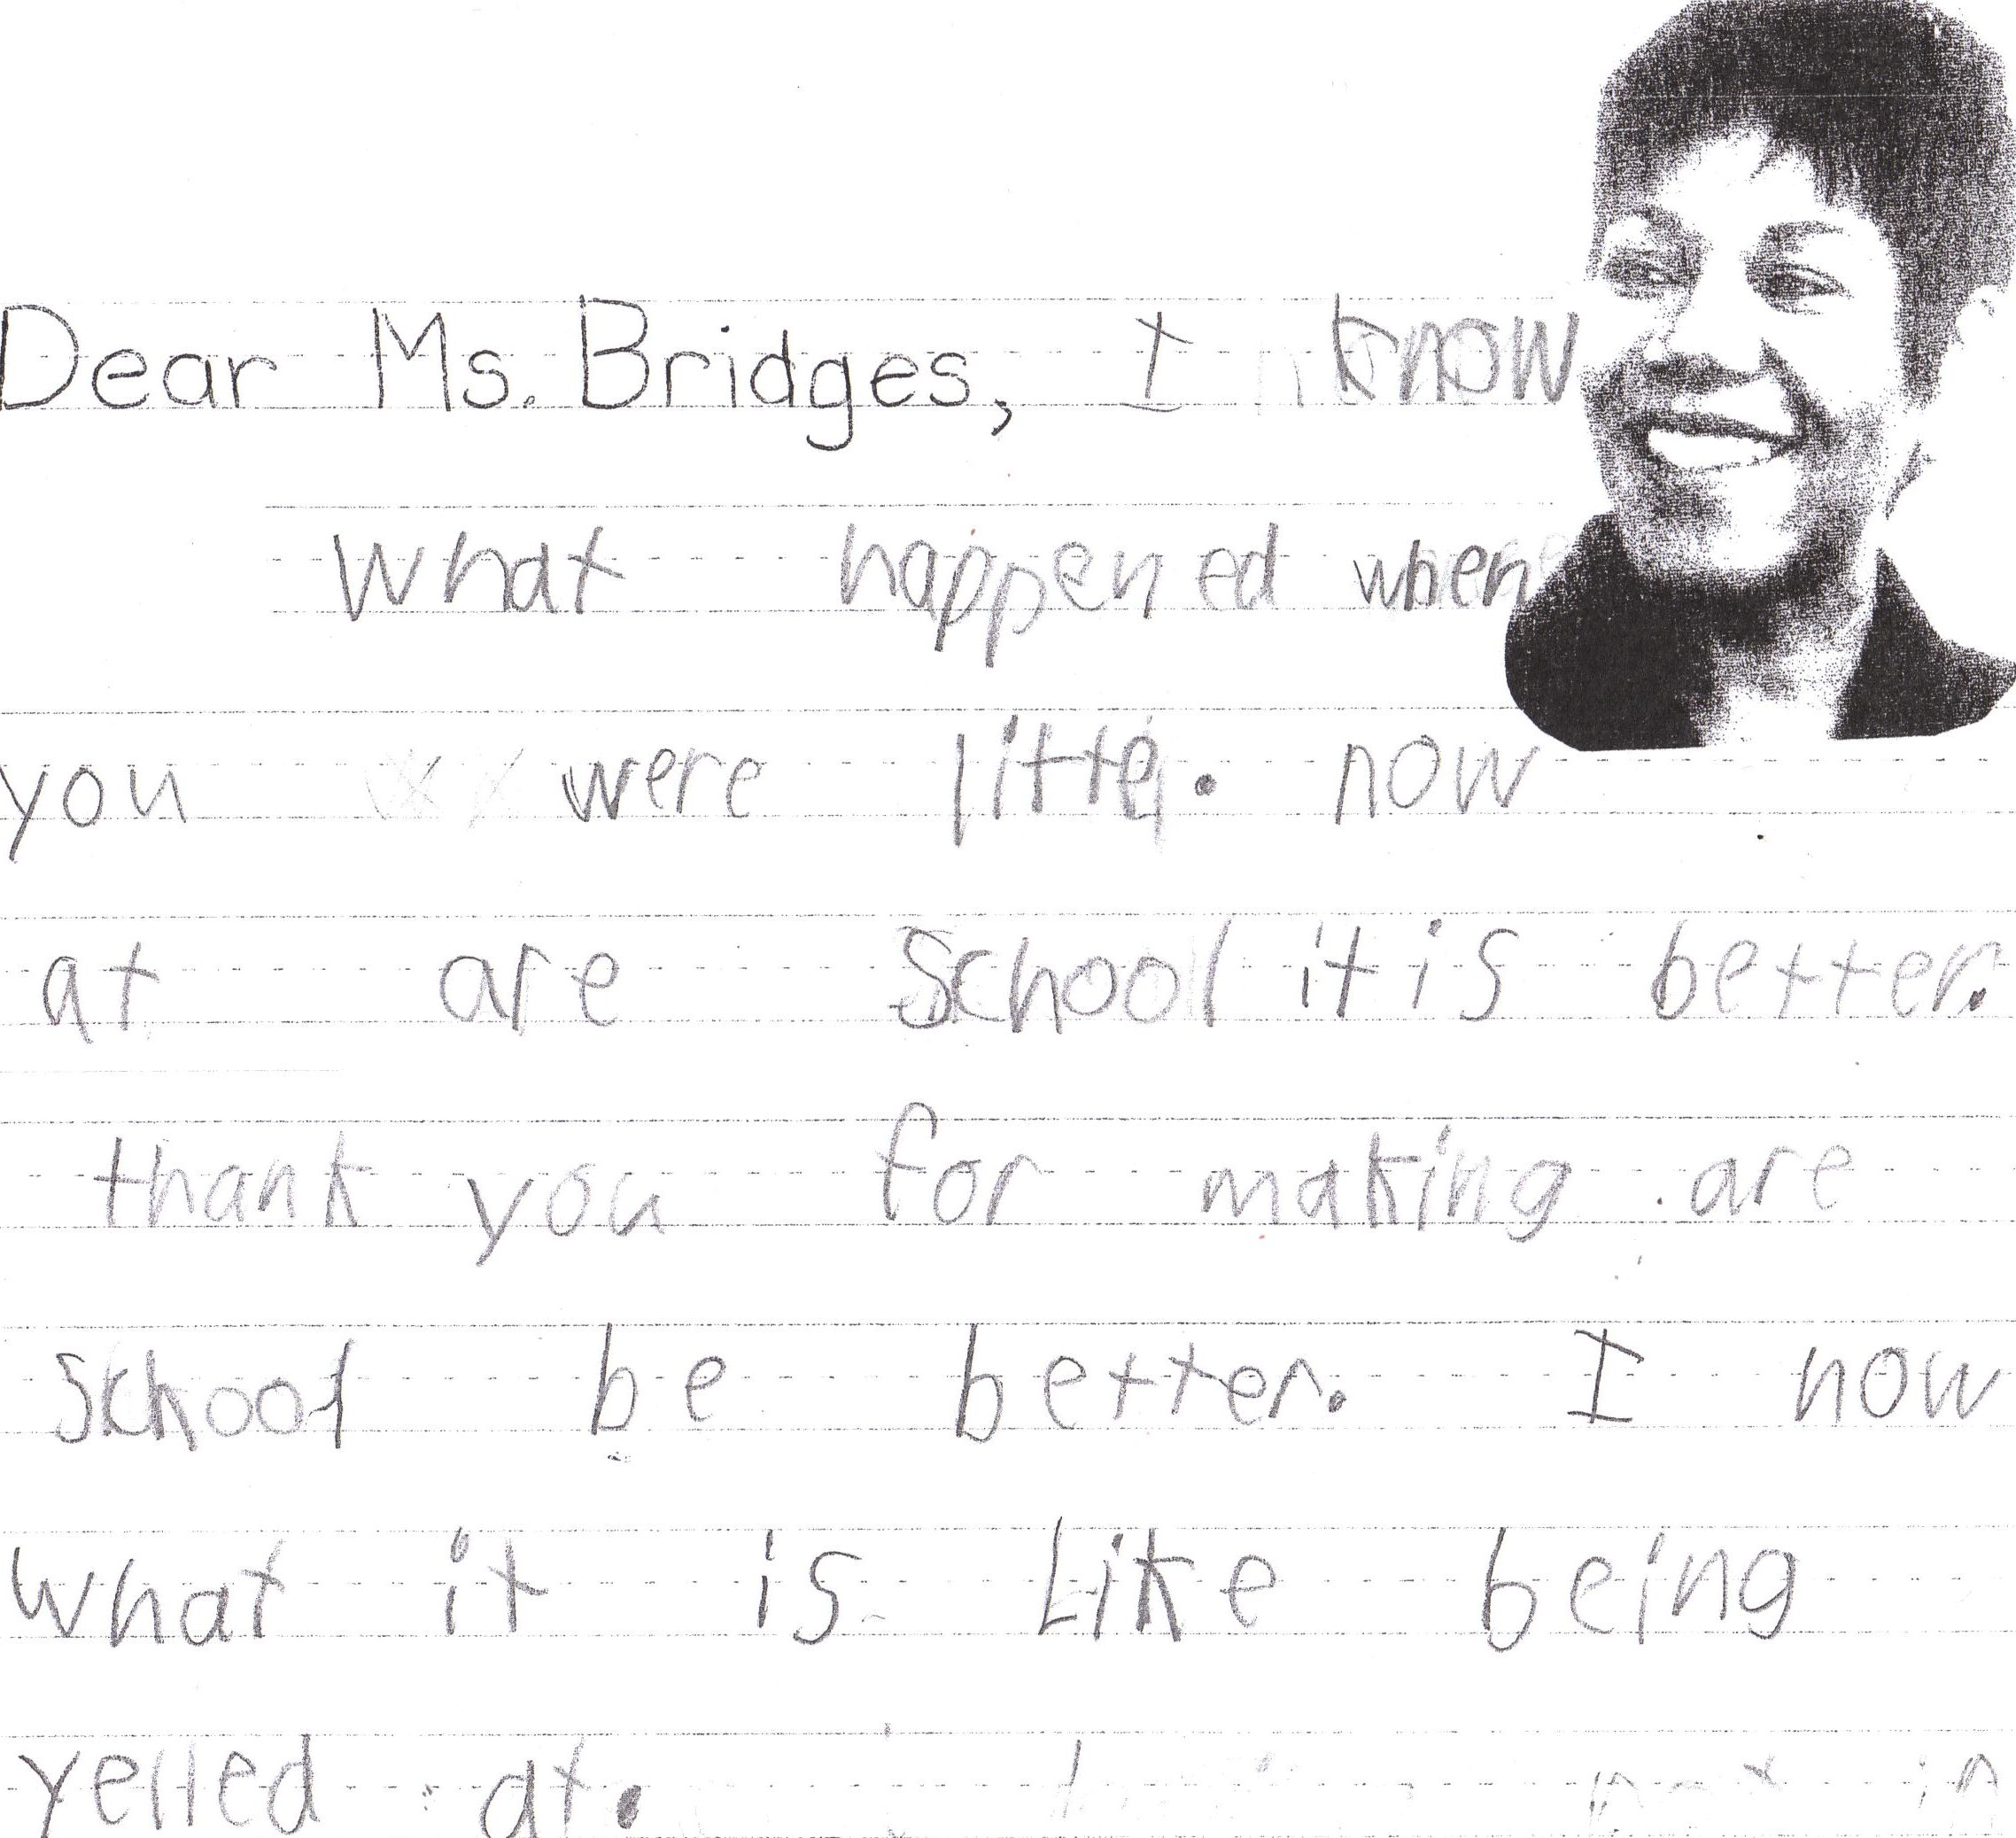 Dear Ms. Bridges, I know
what happened when
you were little. now
at are School it is better.
thank you for making are
School be better. I now
what it is Like being
yelled at.